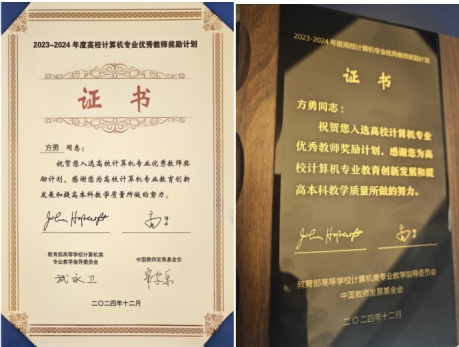 2023-2024 年度高校计算机专业优秀教师奖励计划
证 书
方勇 同志：
祝贺您入选高校计算机专业优秀教师奖
励计划，感谢您为高校计算机专业教育创新
发展和提高本科教学质量所做的努力。
John Hopcroft
教育部高等学校计算机类
专业教学指导委员会
中国教师发展基金会
武永卫
二〇二四年十二月
2023-2024 年度高校计算机专业优秀教师奖励计划
证 书
方勇同志：
祝贺您入选高校计算机专业
优秀教师奖励计划，感谢您为高
校计算机专业教育创新发展和提
高本科教学质量所做的努力。
John Hopcroft
教育部高等学校计算机类专业教学指导委员会
中国教师发展基金会
二〇二四年十二月